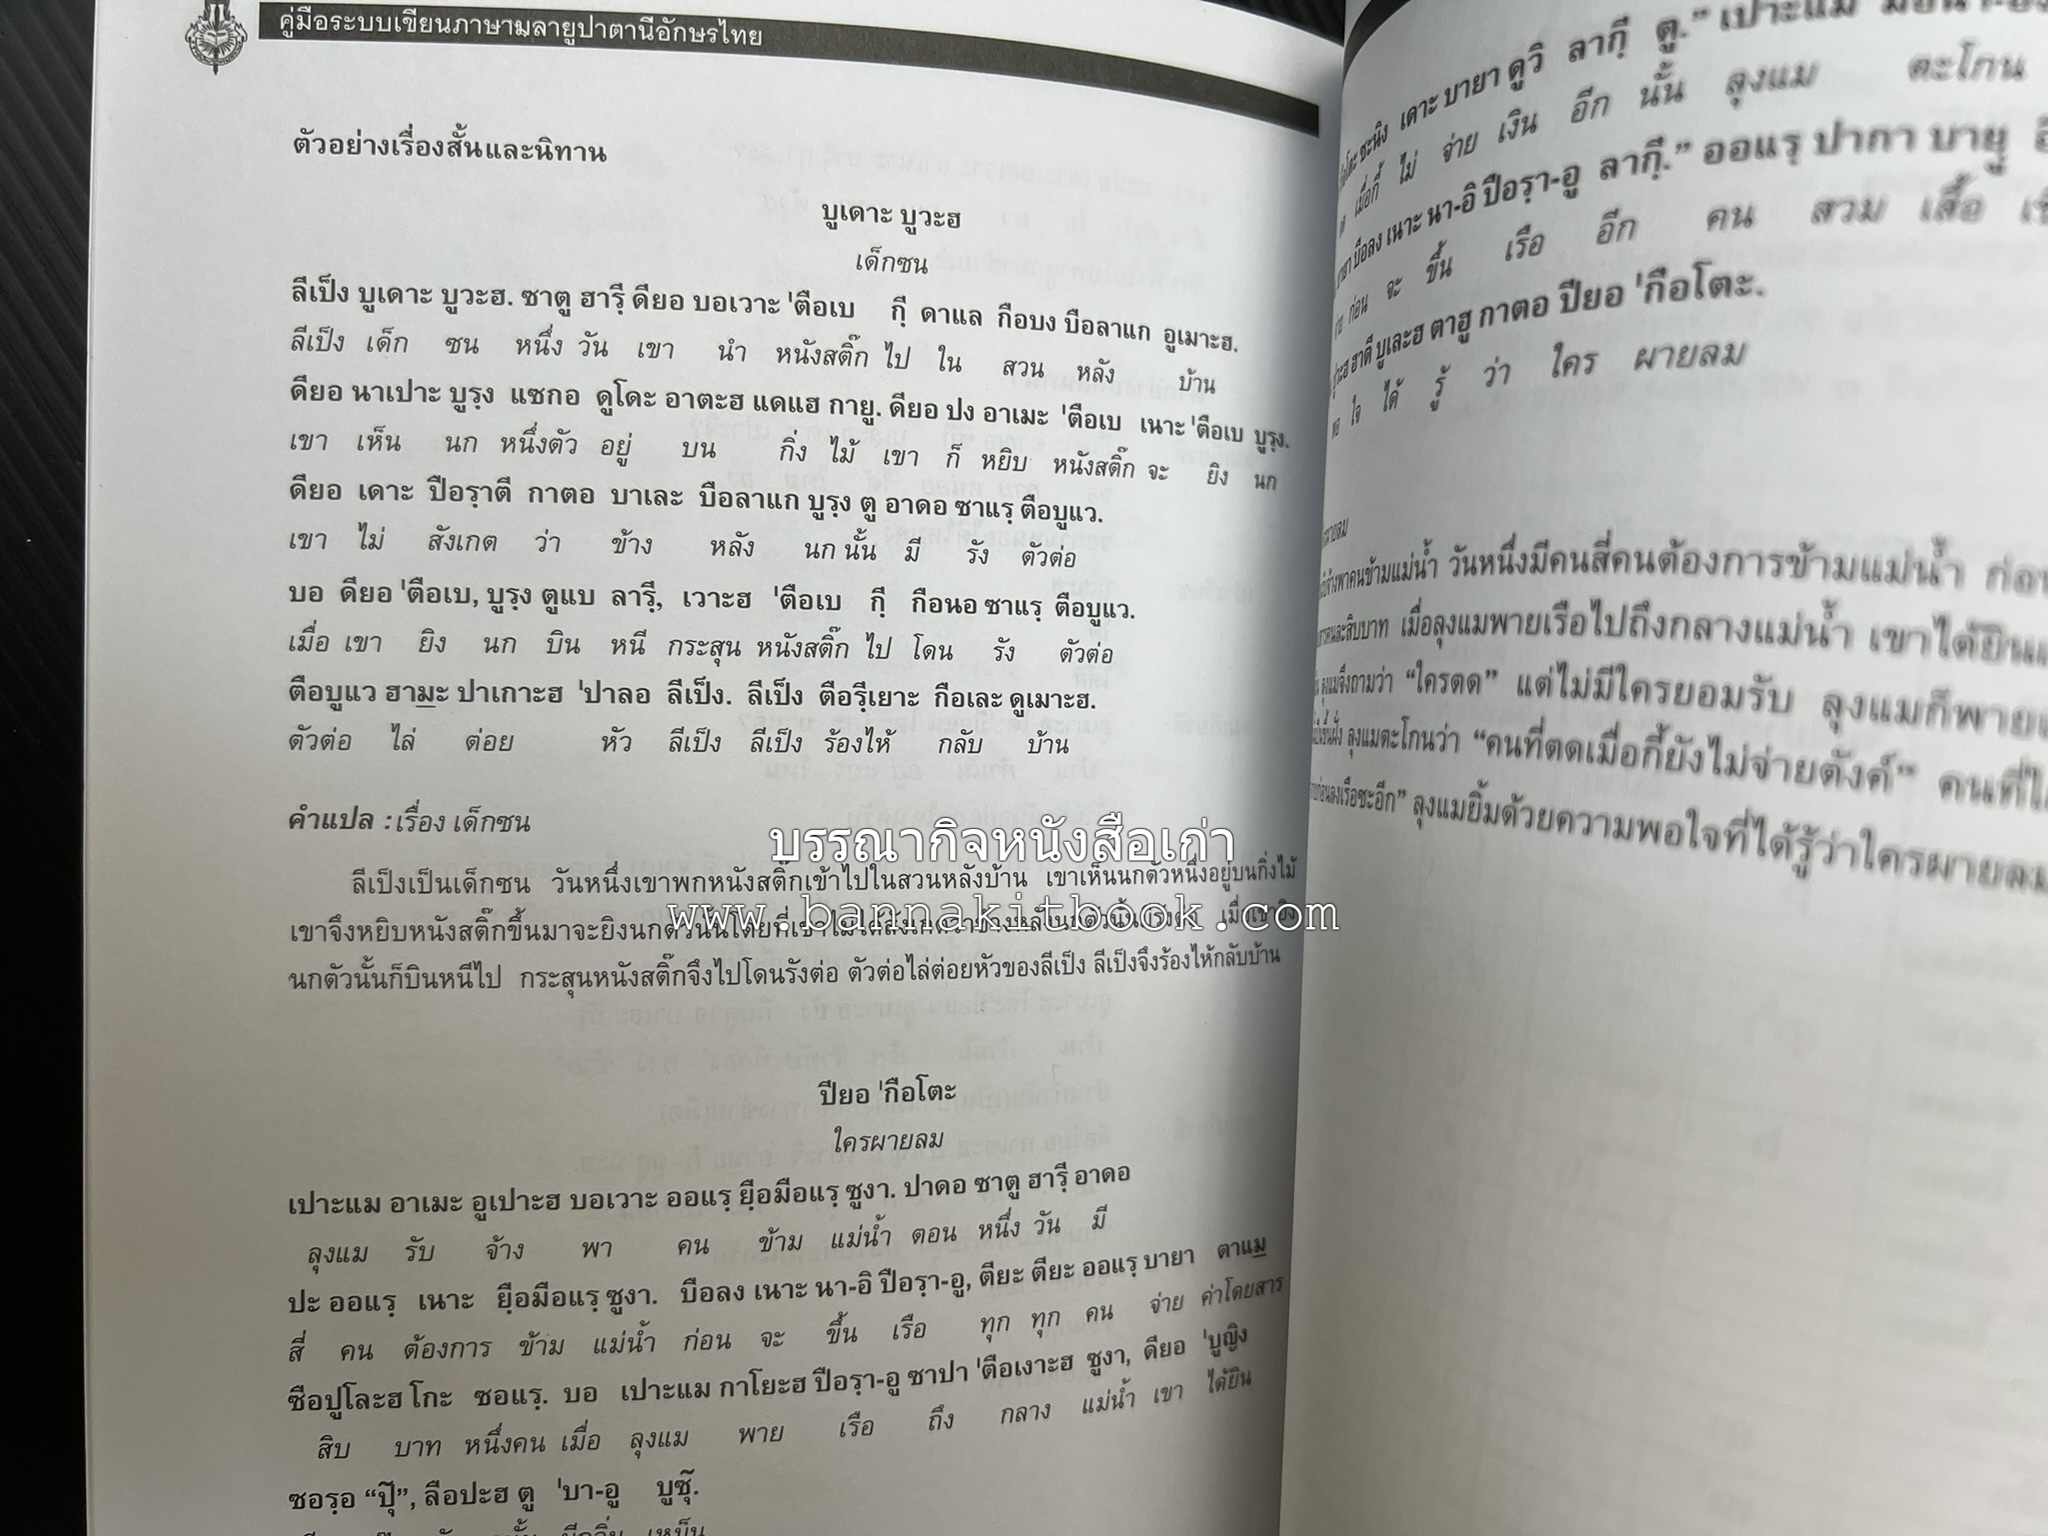 คู่มือระบบเขียนภาษามลายูปาตานีอักษรไทย
ตัวอย่างเรื่องสั้นและนิทาน
บูเดาะ บูวะฮ
เด็กซน
ลีเป็ง บูเดาะ บูวะฮ. ซาตู ฮารฺี ดียอ บอเวาะ 'ตือเบ กฺี ดาแล กือบง บือลาแก อูเมาะฮ.
ลีเป็ง เด็ก ซน หนึ่ง วัน เขา นำ หนังสติ๊ก ไป ใน สวน หลัง บ้าน
ดียอ นาเปาะ บูรฺง แซกอ ดูโดะ อาตะฮ แดแฮ กายู. ดียอ ปง อาเมะ 'ตือเบ เนาะ 'ตือเบ บูรฺง.
เขา เห็น นก หนึ่งตัว อยู่ บน กิ่ง ไม้ เขา ก็ หยิบ หนังสติ๊ก จะ ยิง นก
ดียอ เดาะ ปือรฺาตี กาตอ บาเละ บือลาแก บูรฺง ตู อาดอ ซาแรฺ ตือบูแว.
เขา ไม่ สังเกต ว่า ข้าง หลัง นก นั้น มี รัง ตัวต่อ
บอ ดียอ 'ตือเบ, บูรฺง ตูแบ ลารฺี, เวาะฮ 'ตือเบ กฺี กือนอ ซาแรฺ ตือบูแว.
เมื่อ เขา ยิง นก บิน หนี กระสุน หนังสติ๊ก ไป โดน รัง ตัวต่อ
ตือบูแว ฮามะ ปาเกาะฮ 'ปาลอ ลีเป็ง. ลีเป็ง ตือรฺีเยาะ กือเละ ดูเมาะฮ.
ตัวต่อ ไล่ ต่อย หัว ลีเป็ง ลีเป็ง ร้องไห้ กลับ บ้าน
คำแปล : เรื่อง เด็กซน
บรรณากิจหนังสือเก่า
ลีเป็งเป็นเด็กซน วันหนึ่งเขาพกหนังสติ๊กเข้าไปในสวนหลังบ้าน เขาเห็นนกตัวหนึ่งอยู่บนกิ่งไม้
www.bannakitbook.com
เขาจึงหยิบหนังสติ๊กขึ้นมาจะยิงนกตัวนั้นโดยที่เขาไม่ได้สังเกตว่าข้างหลังนกตัวนั้นมีรังต่อ เมื่อเขายิง
นกตัวนั้นก็บินหนีไป กระสุนหนังสติ๊กจึงไปโดนรังต่อ ตัวต่อไล่ต่อยหัวของลีเป็ง ลีเป็งจึงร้องไห้กลับบ้าน
ปียอ 'กือโตะ
ใครผายลม
เปาะแม อาเมะ อูเปาะฮ บอเวาะ ออแรฺ ยฺือมือแรฺ ซูงา. ปาดอ ซาตู ฮารฺี อาดอ
ลุงแม รับ จ้าง พา คน ข้าม แม่น้ำ ตอน หนึ่ง วัน มี
ปะ ออแรฺ เนาะ ยฺือมือแรฺ ซูงา. บือลง เนาะ นา-อิ ปือรฺา-อู, ตียะ ตียะ ออแรฺ บายา ตาแม
สี่ คน ต้องการ ข้าม แม่น้ำ ก่อน จะ ขึ้น เรือ ทุก ทุก คน จ่าย ค่าโดยสาร
ซือปูโละฮ โกะ ซอแรฺ. บอ เปาะแม กาโยะฮ ปือรฺา-อู ซาปา 'ตือเงาะฮ ซูงา, ดียอ 'บูญิง
สิบ บาท หนึ่งคน เมื่อ ลุงแม พาย เรือ ถึง กลาง แม่น้ำ เขา ได้ยิน
ซอรฺอ “ปุ๊”, ลือปะฮ ตู 'บา-อู บูซุ๊.
เหม็น
เดาะ บายา ดูวิ ลากฺี ตู.” เปาะแม
เมื่อกี้ ไม่ จ่าย เงิน อีก นั้น ลุงแม ตะโกน
บือลง เนาะ นา-อิ ปือรฺา-อู ลากฺี.” ออแรฺ ปากา บายู
ก่อน จะ ขึ้น เรือ อีก คน สวม เสื้อ
ฮาตี บูเละฮ ตาฮู กาตอ ปียอ 'กือโตะ.
ใจ ได้ รู้ ว่า ใคร ผายลม
พาคนข้ามแม่น้ำ วันหนึ่งมีคนสี่คนต้องการข้ามแม่น้ำ
คนละสิบบาท เมื่อลุงแมพายเรือไปถึงกลางแม่น้ำ เขาได้ยิน
ลุงแมจึงถามว่า “ใครตด” แต่ไม่มีใครยอมรับ ลุงแมก็พาย
ลุงแมตะโกนว่า “คนที่ตดเมื่อกี้ยังไม่จ่ายตังค์” คนที่
ก่อนลงเรือซะอีก” ลุงแมยิ้มด้วยความพอใจที่ได้รู้ว่าใครผายลม